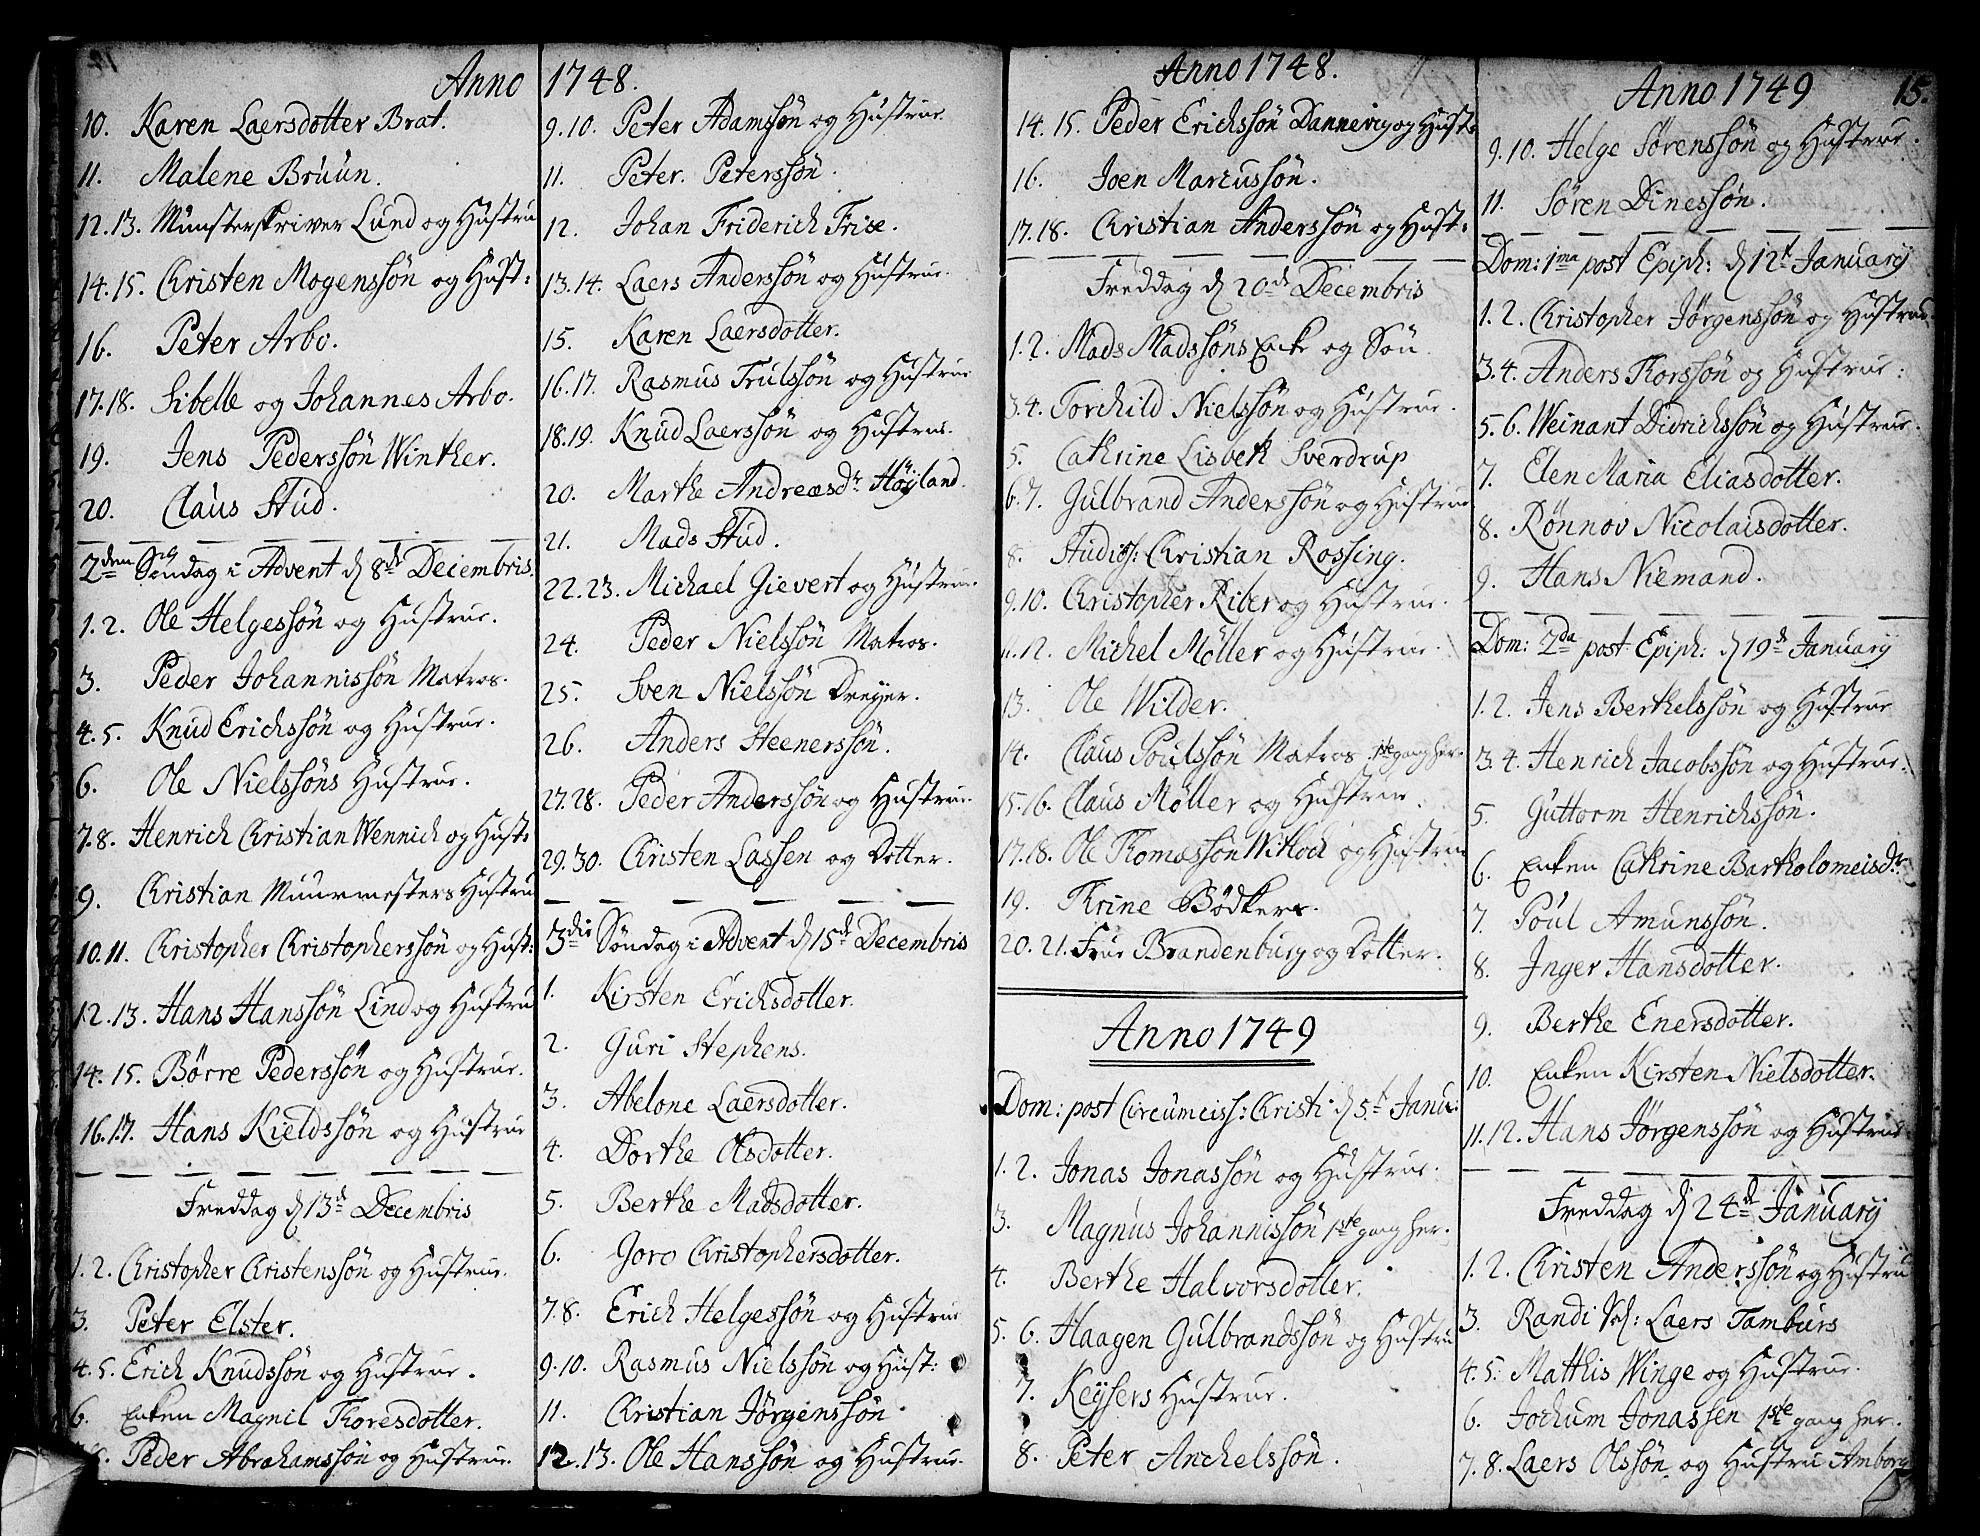 Anno 1748.
10. Karen Laersdotter Brat.
11. Malene Brüün.
12.13. Münsterskriver Lund og Hustru
14.15. Christen Mogenssøn og Hust:
16. Peter Arbo.
17.18. Sibelle og Johannes Arbo.
19. Jens Pederssøn Winther.
20. Claus Stud.
2den Søndag i Advent d 8de Decembris.
1.2. Ole Helgessøn og Hustrue.
3. Peder Johannissøn Matros.
4.5. Knud Erichssøn og Hustrue.
6. Ole Nielssøns Hustrue.
7.8. Henrich Christian Wennich og Hust:
9. Christian Muurmesters Hustru
10.11. Christopher Christopherssøn og Hust:
12.13. Hans Hanssøn Lind og Hustru
14.15. Børre Pederssøn og Hustrue.
16.17. Hans Kieldssøn og Hustrue
Freddag d 13de Decembris
1.2. Christopher Christenssøn og Hustrue.
3. Peter Elster.
4.5. Erich Knudssøn og Hustrue.
6. Enken Magnil Thoresdotter.
7.8. Peder Abrahamssøn og Hustrue.
9.10. Peter Adamssøn og Hustrue
11. Peter Peterssøn.
12. Johan Friderich Frise.
13.14. Laers Anderssøn og Hustrue.
15. Karen Laersdotter.
16.17. Rasmus Trulssøn og Hustrue
18.19. Knud Laerssøn og Hustrue.
20. Marthe Andreæsdr Høyland.
21. Mads Stud.
22.23. Michael Gievert og Hustrue.
24. Peder Nielssøn Matros.
25. Sven Nielssøn Dreyer.
26. Anders Steenerssøn.
27.28. Peder Anderssøn og Hustrue.
29.30. Christen Lassen og Dotter.
3die Søndag i Advent d 15de Decembris
1. Kirsten Erichsdotter.
2. Guri Stephens.
3. Abelone Laersdotter.
4. Dorthe Olsdotter.
5. Berthe Madsdotter.
6. Joro Christophersdotter.
7.8. Erich Helgessøn og Hustrue
9.10. Rasmus Nielssøn og Hust:
11. Christian Jørgenssøn
12.13. Ole Hanssøn og Hustrue.
Anno 1748.
14.15. Peder Erichssøn Dannevig og Hust:
16. Joen Marcussøn.
17.18. Christian Anderssøn og Hust:
Freddag d 20de Decembris
1.2. Mads Madssøns Enke og Søn.
3.4. Torchild Nielssøn og Hustrue.
5. Cathrine Lisbeth Sverdrup
6.7. Gulbrand Anderssøn og Hustrue
8. Studios: Christian Rossing.
9.10. Christopher Riber og Hustrue.
11.12. Michel Møller og Hustrue.
13. Ole Wilder.
14. Claus Poulssøn Matros 1ste gang her.
15.16. Claus Møller og Hustrue.
17.18. Ole Thomassøn Witloch og Hustrue
19. Thrine Bødkers.
20.21. Frue Brandenburg og Dotter.
Anno 1749
Dom: post Circumciss: Christi d 5te Janu:
1.2. Jonas Jonassøn og Hustrue.
3. Magnus Johannissøn 1ste gang her.
4. Berthe Halvorsdotter.
5.6. Haagen Gulbrandssøn og Hustru
7. Keysers Hustrue.
8. Peter Anchelssøn.
Anno 1749 15.
9.10. Helge Sørenssøn og Hustrue.
11. Søren Dinessøn.
Dom: 1ma post Epiph: d 12te January
1.2. Christopher Jørgenssøn og Hustrue.
3.4. Anders Thorssøn og Hustrue:
5.6. Weinant Didrichssøn og Hustrue.
7. Elen Maria Eliasdotter.
8. Rønnov Nicolaisdotter.
9. Hans Niemand.
Dom: 2da post Epiph: d 19de January
1.2. Jens Berthelssøn og Hustrue
3.4. Henrich Jacobssøn og Hustrue.
5. Guttorm Henrichssøn.
6. Enken Cathrine Bartholomeisdr.
7. Poul Amunssøn.
8. Inger Hansdotter.
9. Berthe Enersdotter.
10. Enken Kirsten Nielsdotter.
11.12. Hans Jørgenssøn og Hustrue
Freddag d 24de January
1.2. Christen Anderssøn og Hustru
3. Randi Sel: Laers Tambürs
4.5. Mathis Winge og Hustrue.
6. Jochum Jonassen 1ste gang her.
7.8. Laers Olssøn og Hustru Amborg